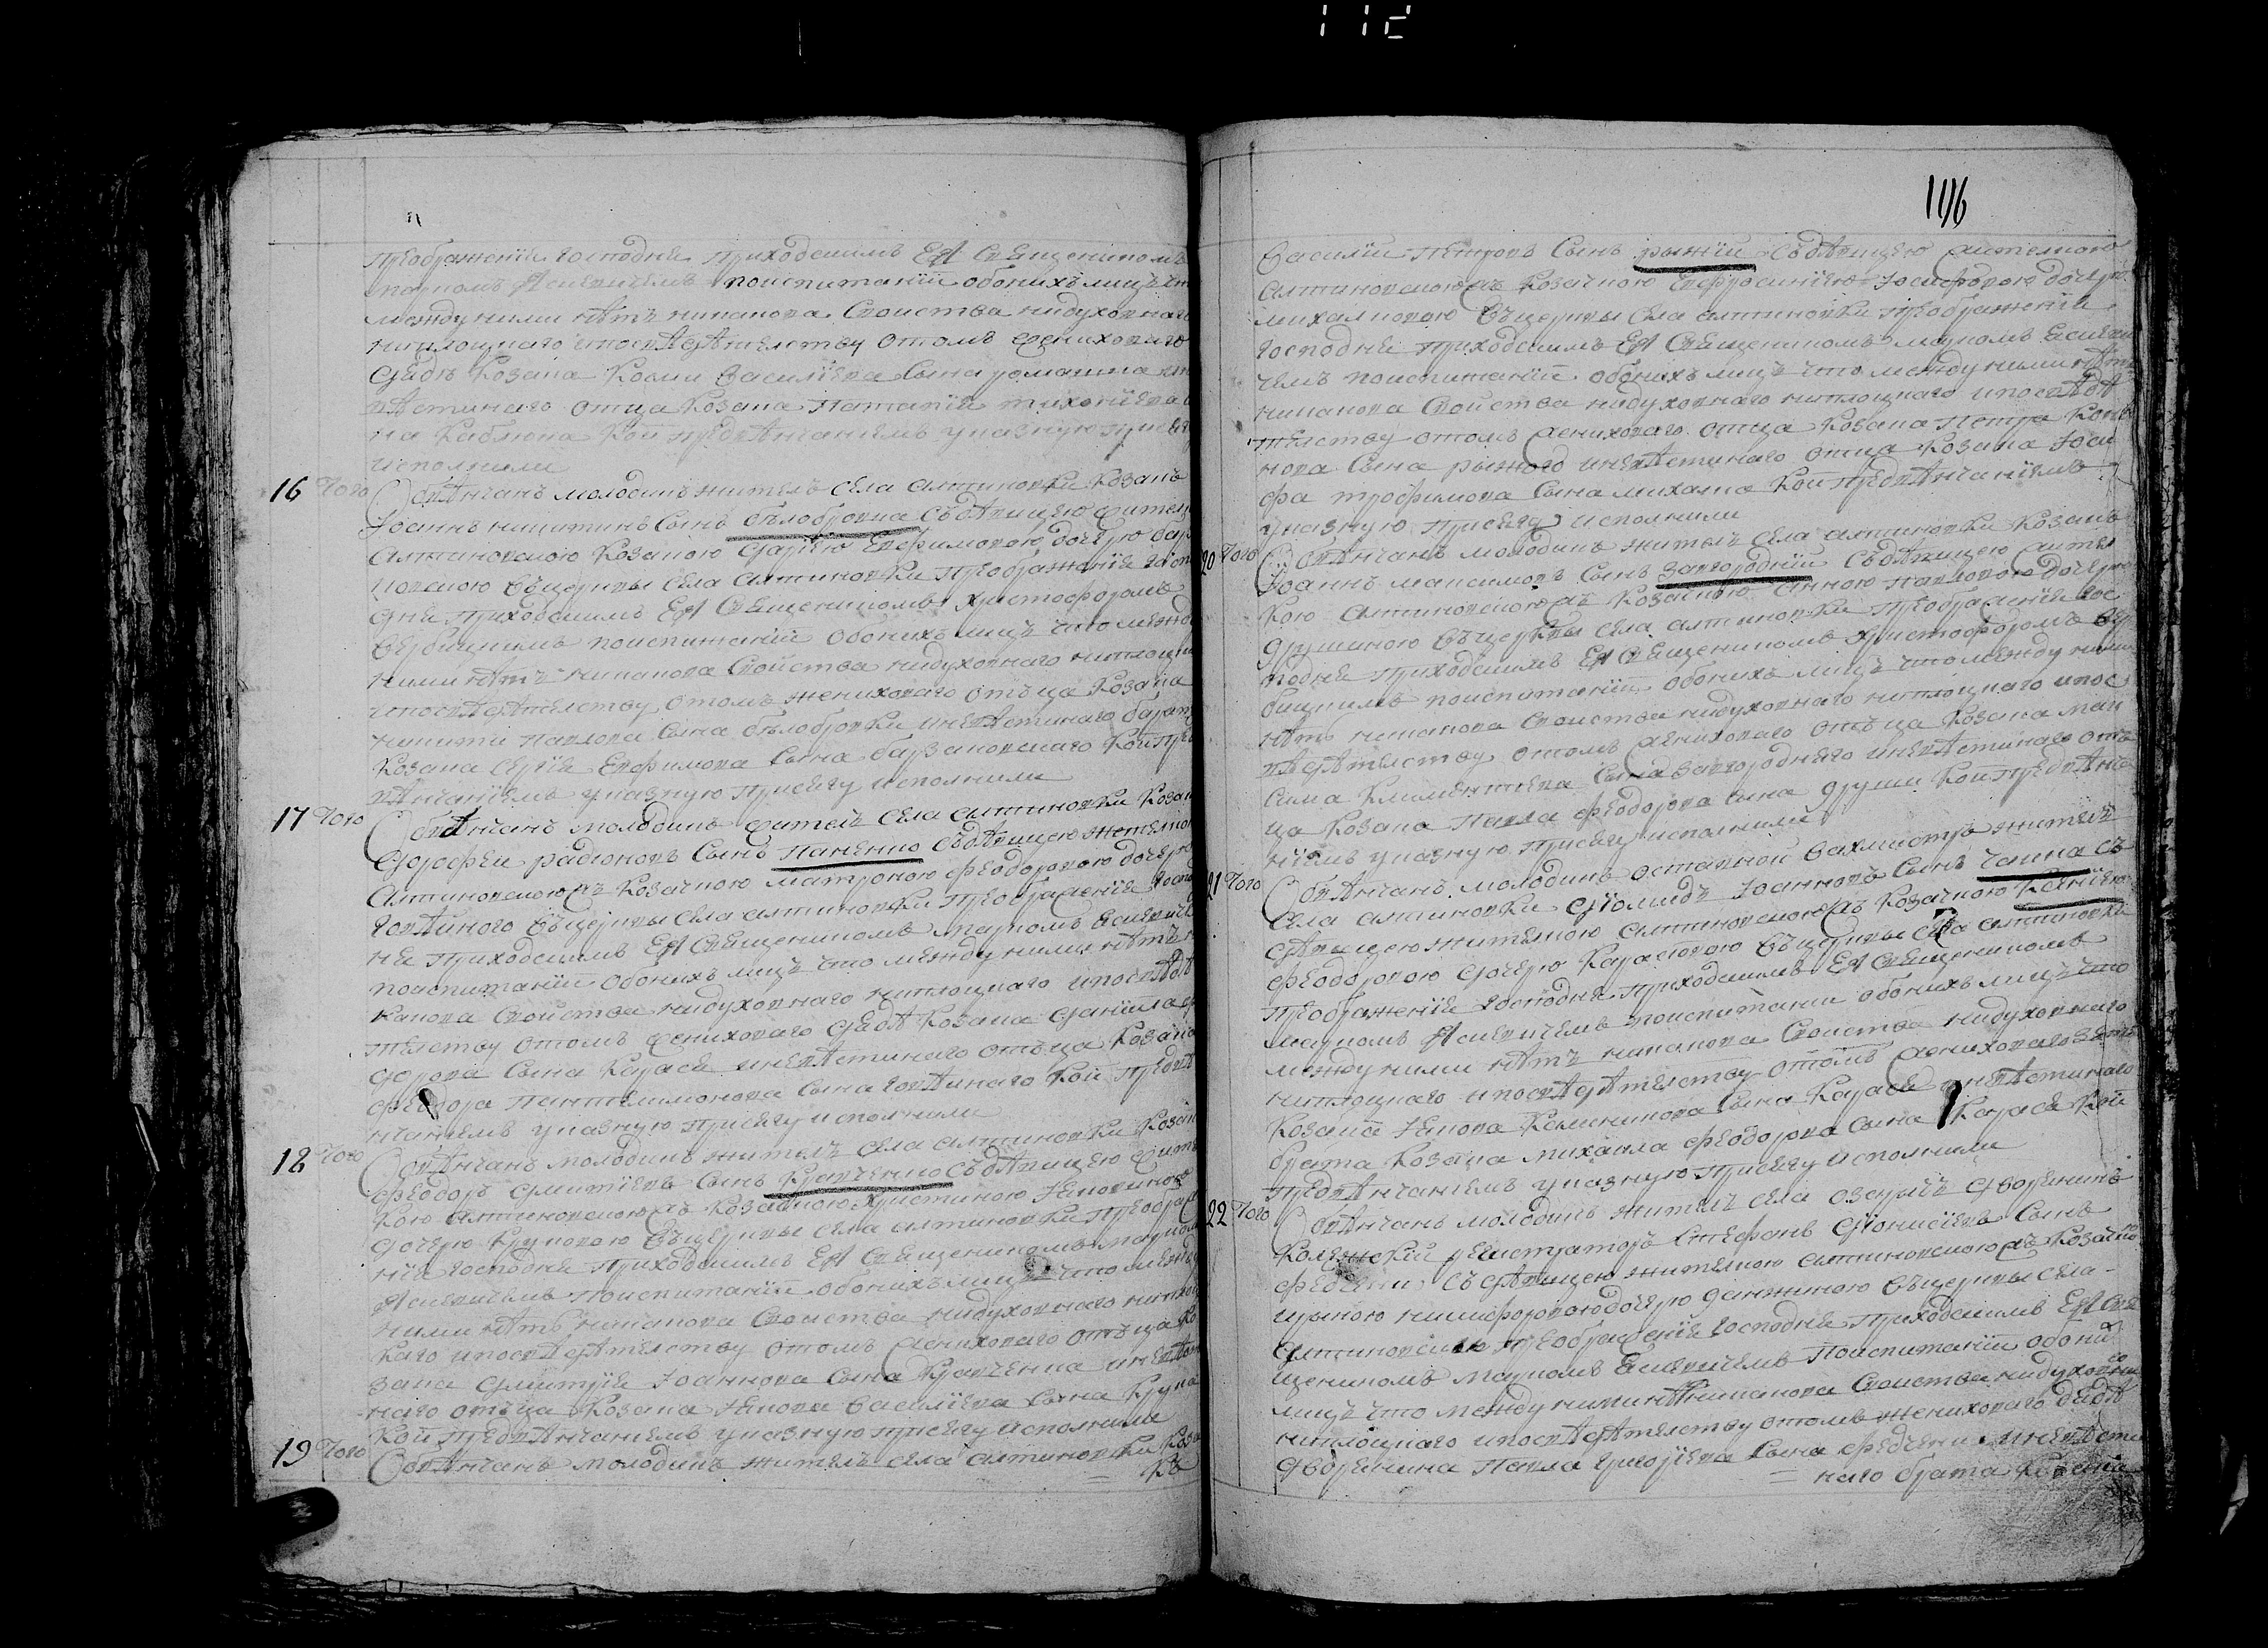 преображения Господня приходскимъ Ея Священникомъ
марκомъ Ясневичемъ поиспитаніи обоихъ лицъ что
между ними нѣтъ никакова свойства нидуховнаго
ниплоцкаго ипосвѣдѣтелству отомъ женихового
деда козака Козми василіева сына ромашка
вѣстинаго отца козака Патапія тихоніева
на каблюка кои предвѣнчаніемъ указную присягу
исполнили
16 Того Обвѣнчанъ молодикъ житель села алтиновки козакъ
Іоаннъ никитинъ сынъ бѣлобровка съдѣвицею жител
алтиновскою козачкою Даріею Евфимовою дочерю
повскою въцеркви села алтиновки преображенія госпо
дня приходскимъ Ея Священникомъ Христофоромъ
вербицкимъ поиспитаніи обоихъ лицъ что между
ними нѣтъ никакова свойства нидуховнаго ниплоцка
ипосвѣдѣтелству отомъ женихового отъца козака
никити павлова сына бѣлобровки иневѣстинаго
козака Сергія Евфимова сына барзаковскаго кои пре
вѣнчаніемъ указную присягу исполнили
17 Того Обвѣнчанъ молодикъ житель села алтиновки козак
Дорофеи радионовъ сынъ Паненко съдѣвицею жителко
алтиновскою козачкою матроною феодоровою дочерю
говѣиного въцеркви села алтиновки преображенія госпо
ня приходскимъ Ея Священникомъ маркомъ Ясневич
поиспитаніи обоихъ лицъ что между ними нѣтъ
какова свойства нидуховнаго ниплоцкаго ипосвѣдѣ
телству отомъ женихового деда козака даніила
дорова сына карася иневѣстинаго отъца козака
феодора пантелимонова сына говѣинаго кои предвѣ
нчаніемъ указную присягу исполнили
18 Того Обвѣнчанъ молодикъ житель села алтиновки козак
феодоръ дмитріевъ сынъ Кравченко съдѣвицею жител
кою алтиновскою козачкою Христиною Іаковиною
дочерю круповою въцеркви села алтиновки преображе
нія Господня приходскимъ Ея Священникомъ марком
Ясневичемъ поиспитаніи обоихъ лицъ что между
ними нѣтъ никакова свойства нидуховнаго ниплоц
каго ипосвѣдѣтелству отомъ женихового отъца ко
зака дмитрія Іоаннова сына Кравченка иневѣсти
наго отъца козака Іакова василіева сына крупа
кои предвѣнчаніемъ указную присягу исполнили
19 Того Обвѣнчанъ молодикъ житель села алтиновки коза
къ
116
василіи петровъ сынъ рыжіи съдѣвицею жителкою
алтиновскою козачкою Евфросиніею Іосифовою дочерю
михалковою въцеркви села алтиновки преображенія
Господня приходскимъ Ея Священникомъ маркомъ Ясневи
чемъ поиспитаніи обоихъ лицъ что между ними нѣтъ
никакова свойства нидуховнаго ниплоцкаго ипосвѣдѣ
телству отомъ женихового отца козака петра
нова сына рыжого иневѣстинаго отца козака Іоси
фа трофимова сына михалка кои предвѣнчаніемъ
указную присягу исполнили
20 Того Обвѣнчанъ молодикъ житель села алтиновки козакъ
Іоаннъ максимовъ сынъ загородніи съдѣвицею жител
кою алтиновскою козачкою Анною павловою дочерю
друшиною въцеркви села алтиновки преображенія гос
подня приходскимъ Ея Священникомъ Христофоромъ вер
бицкимъ поиспитаніи обоихъ лицъ что между ними
нѣтъ никакова свойства нидуховнаго ниплоцкаго ипос
вѣдѣтелству отомъ женихового отъца козака мак
сима климентіева сына загороднего иневѣстинаго отъ
ца козака павла феодорова сына друши кои предвѣнча
ніемъ указную присягу исполнили
21 Того Обвѣнчанъ молодикъ оставной вахмистръ житель
села алтиновки Діомидъ Іоанновъ сынъ чалка съ
дѣвицею жителкою алтиновскою козачкою Ксеніею
феодоровою дочерю карасювою въцеркви села алтиновки
преображенія Господня приходскимъ Ея Священникомъ
маркомъ Ясневичемъ поиспитаніи обоихъ лицъ что
между ними нѣтъ никакова свойства нидуховнаго
ниплоцкаго ипосвѣдѣтелству отомъ женихового зятя
козака Іакова калиникова сына карася иневѣстинаго
брата козака михаила феодорова сына карася кои
предвѣнчаніемъ указную присягу исполнили
22 Того Обвѣнчанъ молодикъ житель села озаричъ дворенинъ
коллежскіи регистраторъ Стефанъ діонисіевъ сынъ
съдѣвицею жителкою алтиновскою козачко
никифоровою дочерю въцеркви села
алтиновскою преображенія Господня приходскимъ Ея Свя
щенникомъ маркомъ Ясневичемъ поиспитаніи обоихъ
лицъ что между ними никакова свойства нидуховна
ниплоцкаго ипосвѣдѣтелству отомъ женихового дядя
дворенина павла григоріева сына иневѣсти
наго брата козака